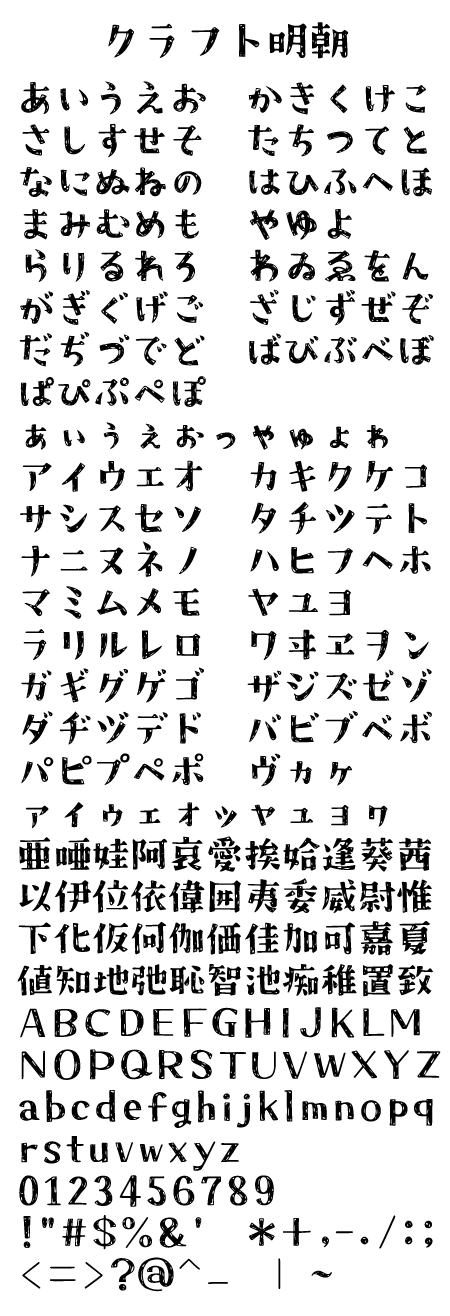 クラフト明朝
あいうえお　かきくけこ
さしすせそ　たちつてと
なにぬねの　はひふへほ
まみむめも　やゆよ
らりるれろ　わゐゑをん
がぎぐげご　ざじずぜぞ
だぢづでど　ばびぶべぼ
ぱぴぷぺぽ
ぁぃぅぇぉっゃゅょゎ
アイウエオ　カキクケコ
サシスセソ　タチツテト
ナニヌネノ　ハヒフヘホ
マミムメモ　ヤユヨ
ラリルレロ　ワヰヱヲン
ガギグゲゴ　ザジズゼゾ
ダヂヅデド　バビブベボ
パピプペポ　ヴヵヶ
ァィゥェォッャュョヮ
亜唖娃阿哀愛挨姶逢葵茜
以伊位依偉囲夷委威尉惟
下化仮何伽価佳加可嘉夏
値知地弛恥智池痴稚置致
ABCDEFGHIJKLM
NOPQRSTUVWXYZ
abcdefghijklmnopq
rstuvwxyz
0123456789
!"#$%&' *+,-./:;
<=>?@^_ | ~